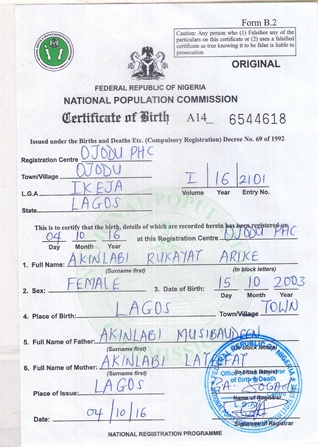 Form B.2
Caution: Any person who (1) Falsifies any of the
particulars on this certificate or (2) uses a falsified
certificate as true knowing it to be false is liable to
prosecution.
ORIGINAL
FEDERAL REPUBLIC OF NIGERIA
NATIONAL POPULATION COMMISSION
Certificate of Birth A14_ 6544618
Issued under the Births and Deaths Etc. (Compulsory Registration) Decree No. 69 of 1992
Registration Centre OJODU PHC
Town/Village OJODU
L.G.A IKEJA
I 16 2101
Volume Year Entry No.
State LAGOS
This is to certify that the birth, details of which are recorded herein has been registered on
04 10 16 at this Registration Centre OJODU PHC
Day Month Year
1. Full Name: AKINLABI RUKAYAT ARIKE
(Surname first) (In block letters)
2. Sex: FEMALE 3. Date of Birth: 15 10 2003
Day Month Year
4. Place of Birth: LAGOS Town/Village TOWN
5. Full Name of Father: AKINLABI MUSIBAUDEEN
(Surname first)
6. Full Name of Mother: AKINLABI LATEEFAT
(Surname first)
Place of Issue: LAGOS
Name of Registrar
Date: 04/10/16
Signature of Registrar
NATIONAL REGISTRATION PROGRAMME